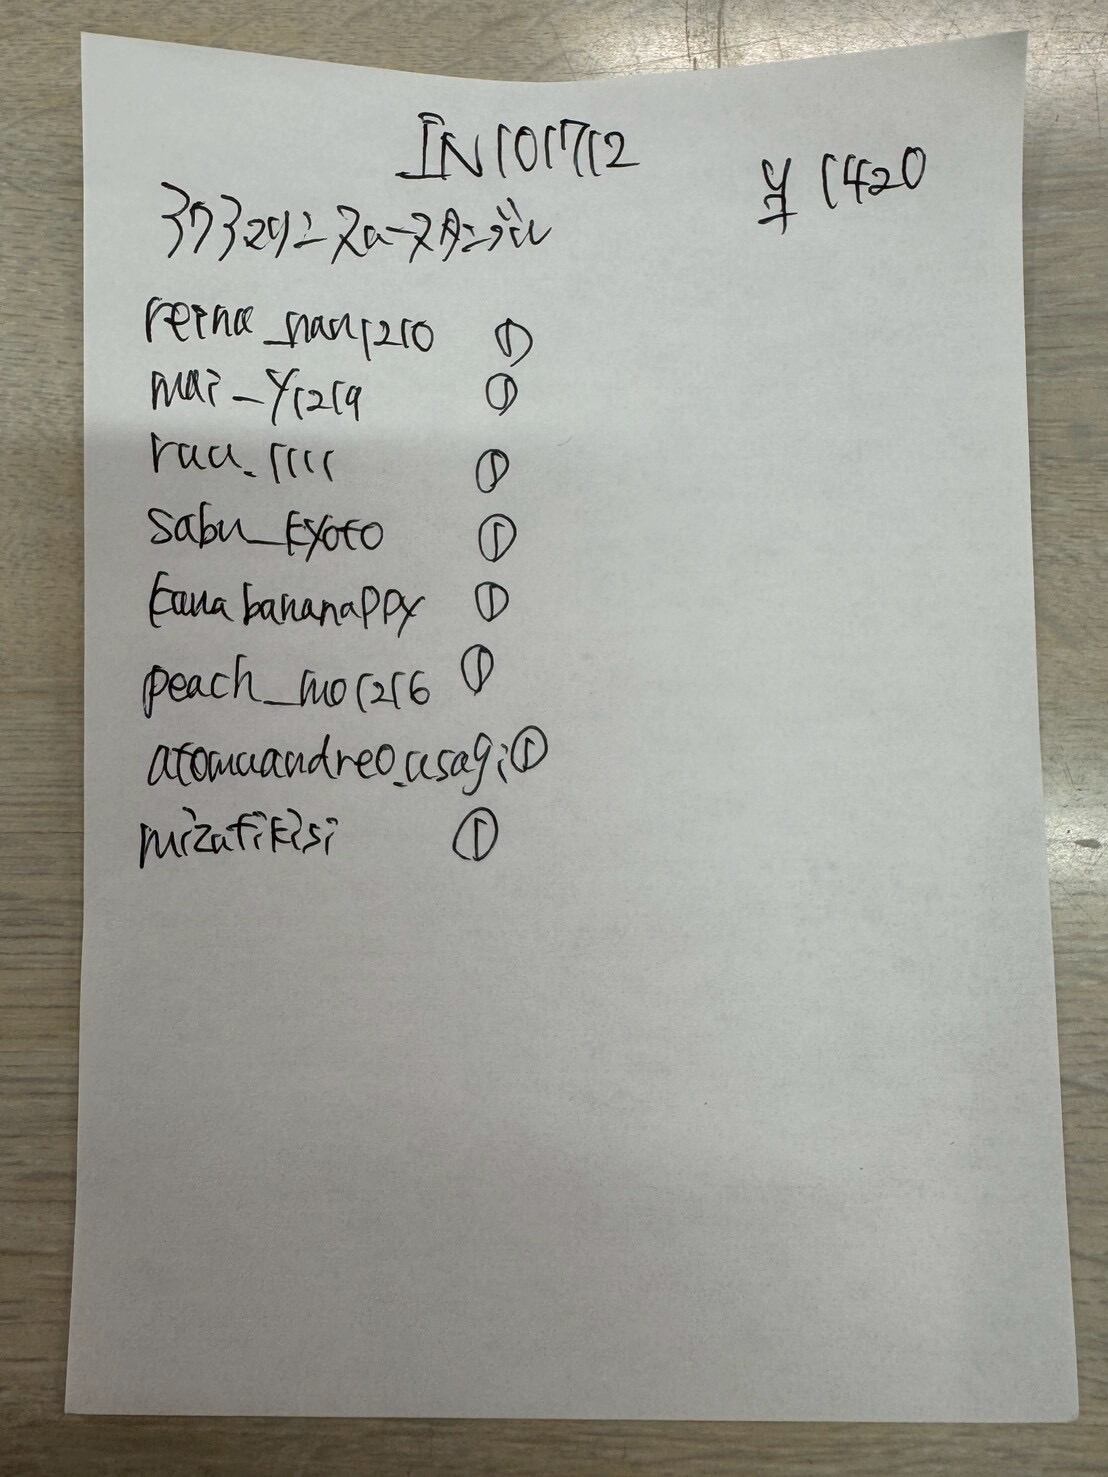 IN101712
¥ 1420
reina_nan1210 ①
mai_y1219 ①
rau_1111 ①
sabu_kyoto ①
kanabananappy ①
peach_mo1216 ①
atomuandreo_usagi ①
mizutikisi ①